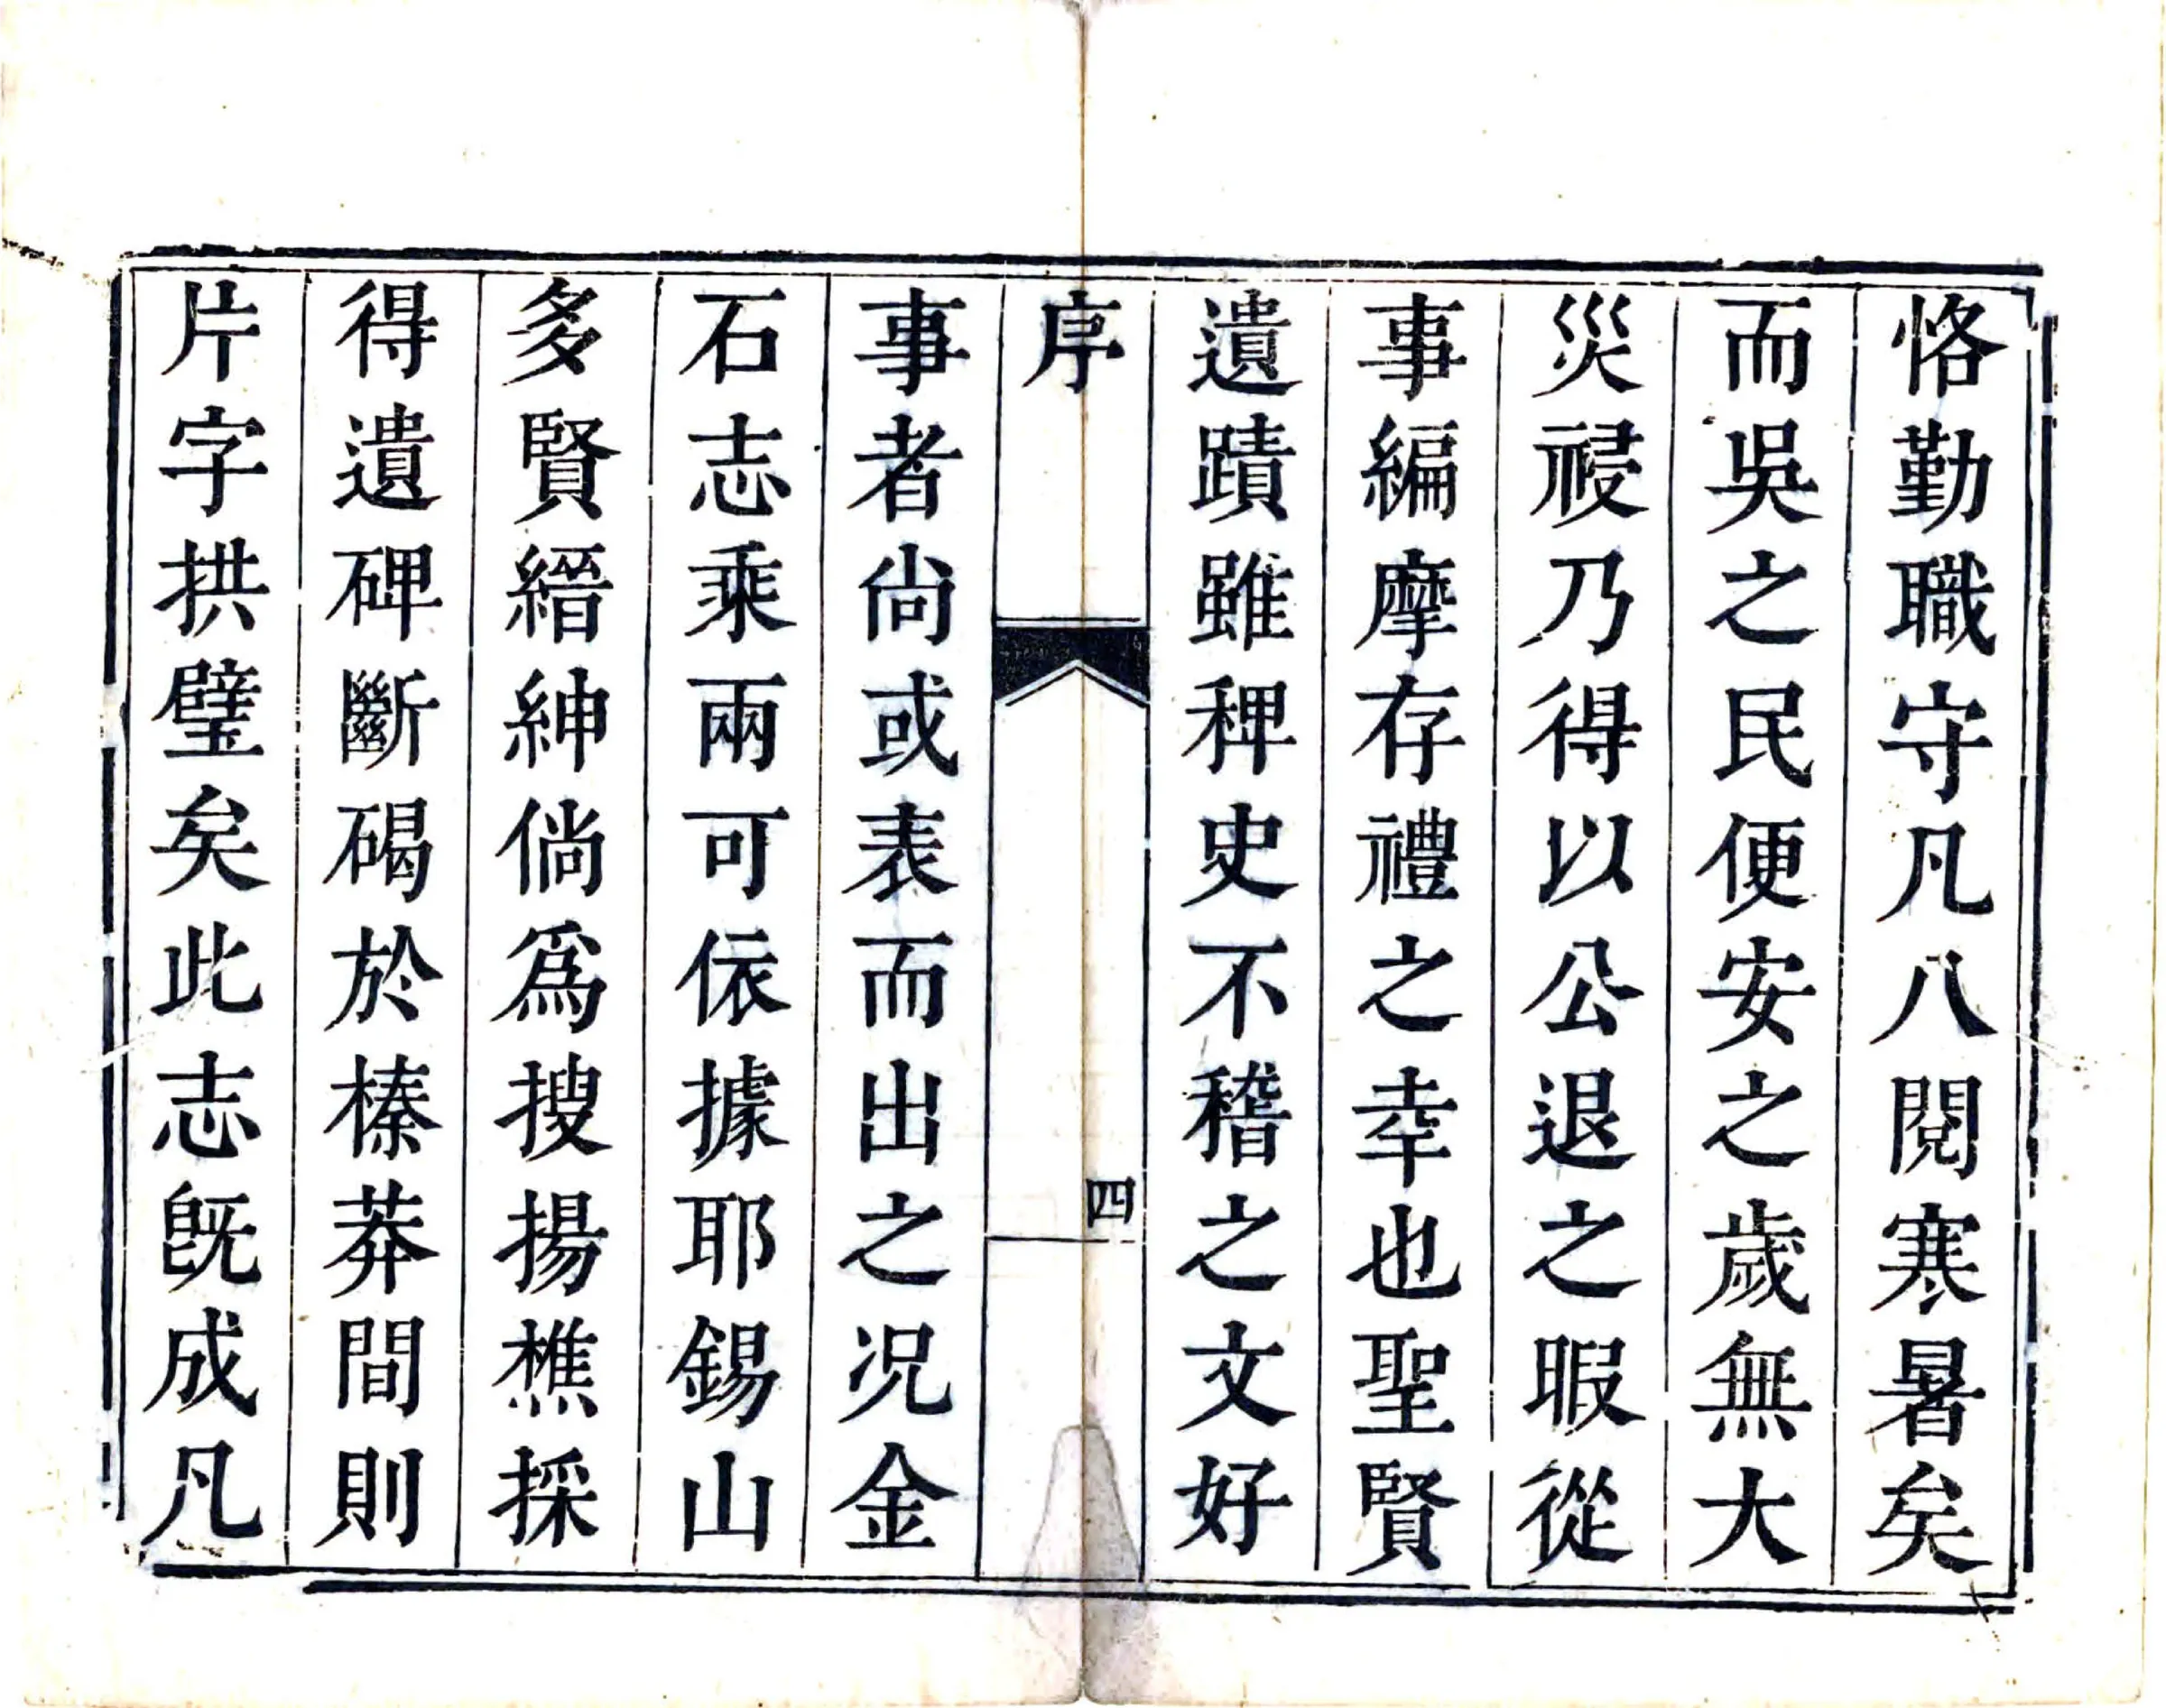 恪勤職守凡八閱寒暑矣
而吳之民便安之歲無大
災祲乃得以公退之暇從
事編摩存禮之幸也聖賢
遺蹟雖稗史不稽之文好
序
四
事者尙或表而出之况金
石志乘兩可依據耶錫山
多賢縉紳倘爲搜揚樵採
得遺碑斷碣於榛莽間則
片字拱璧矣此志旣成凡